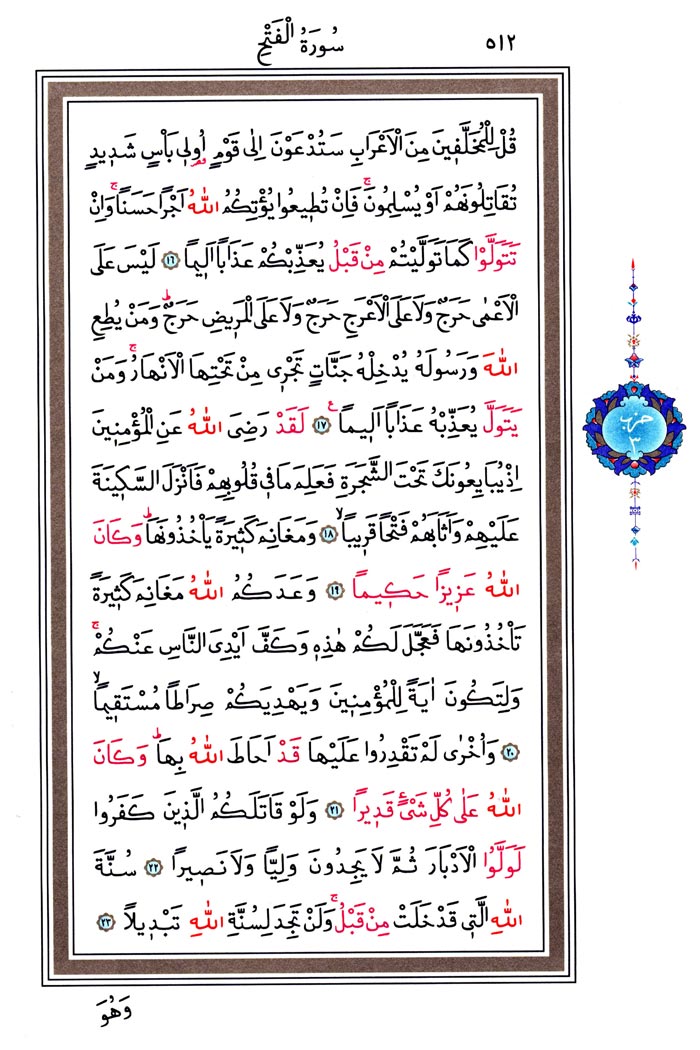 ٥١٢
سُورَةُ الْفَتْحِ
قُلْ لِلْمُخَلَّفٖينَ مِنَ الْاَعْرَابِ سَتُدْعَوْنَ اِلٰى قَوْمٍ اُو۬لٖى بَأْسٍ شَدٖيدٍ
تُقَاتِلُونَهُمْ اَوْ يُسْلِمُونَۚ فَاِنْ تُطٖيعُوا يُؤْتِكُمُ اللّٰهُ اَجْرًا حَسَنًاۚ وَاِنْ
تَتَوَلَّوْا كَمَا تَوَلَّيْتُمْ مِنْ قَبْلُ يُعَذِّبْكُمْ عَذَابًا اَلٖيمًا ﴿١٦﴾ لَيْسَ عَلَى
الْاَعْمٰى حَرَجٌ وَلَا عَلَى الْاَعْرَجِ حَرَجٌ وَلَا عَلَى الْمَرٖيضِ حَرَجٌؕ وَمَنْ يُطِعِ
اللّٰهَ وَرَسُولَهُ يُدْخِلْهُ جَنَّاتٍ تَجْرٖى مِنْ تَحْتِهَا الْاَنْهَارُۚ وَمَنْ
يَتَوَلَّ يُعَذِّبْهُ عَذَابًا اَلٖيمًا ﴿١٧﴾ ع لَقَدْ رَضِىَ اللّٰهُ عَنِ الْمُؤْمِنٖينَ
اِذْ يُبَايِعُونَكَ تَحْتَ الشَّجَرَةِ فَعَلِمَ مَا فٖى قُلُوبِهِمْ فَاَنْزَلَ السَّكٖينَةَ
عَلَيْهِمْ وَاَثَابَهُمْ فَتْحًا قَرٖيبًاۙ ﴿١٨﴾ وَمَغَانِمَ كَثٖيرَةً يَأْخُذُونَهَاؕ وَكَانَ
اللّٰهُ عَزٖيزًا حَكٖيمًا ﴿١٩﴾ وَعَدَكُمُ اللّٰهُ مَغَانِمَ كَثٖيرَةً
تَأْخُذُونَهَا فَعَجَّلَ لَكُمْ هٰذِهٖ وَكَفَّ اَيْدِىَ النَّاسِ عَنْكُمْۚ
وَلِتَكُونَ اٰيَةً لِلْمُؤْمِنٖينَ وَيَهْدِيَكُمْ صِرَاطًا مُسْتَقٖيمًاۙ
﴿٢٠﴾ وَاُخْرٰى لَمْ تَقْدِرُوا عَلَيْهَا قَدْ اَحَاطَ اللّٰهُ بِهَاؕ وَكَانَ
اللّٰهُ عَلٰى كُلِّ شَىْءٍ قَدٖيرًا ﴿٢١﴾ وَلَوْ قَاتَلَكُمُ الَّذٖينَ كَفَرُوا
لَوَلَّوُا الْاَدْبَارَ ثُمَّ لَا يَجِدُونَ وَلِيًّا وَلَا نَصٖيرًا ﴿٢٢﴾ سُنَّةَ
اللّٰهِ الَّتٖى قَدْ خَلَتْ مِنْ قَبْلُۚ وَلَنْ تَجِدَ لِسُنَّةِ اللّٰهِ تَبْدٖيلًا ﴿٢٣﴾
وَهُوَ
حزب
٣